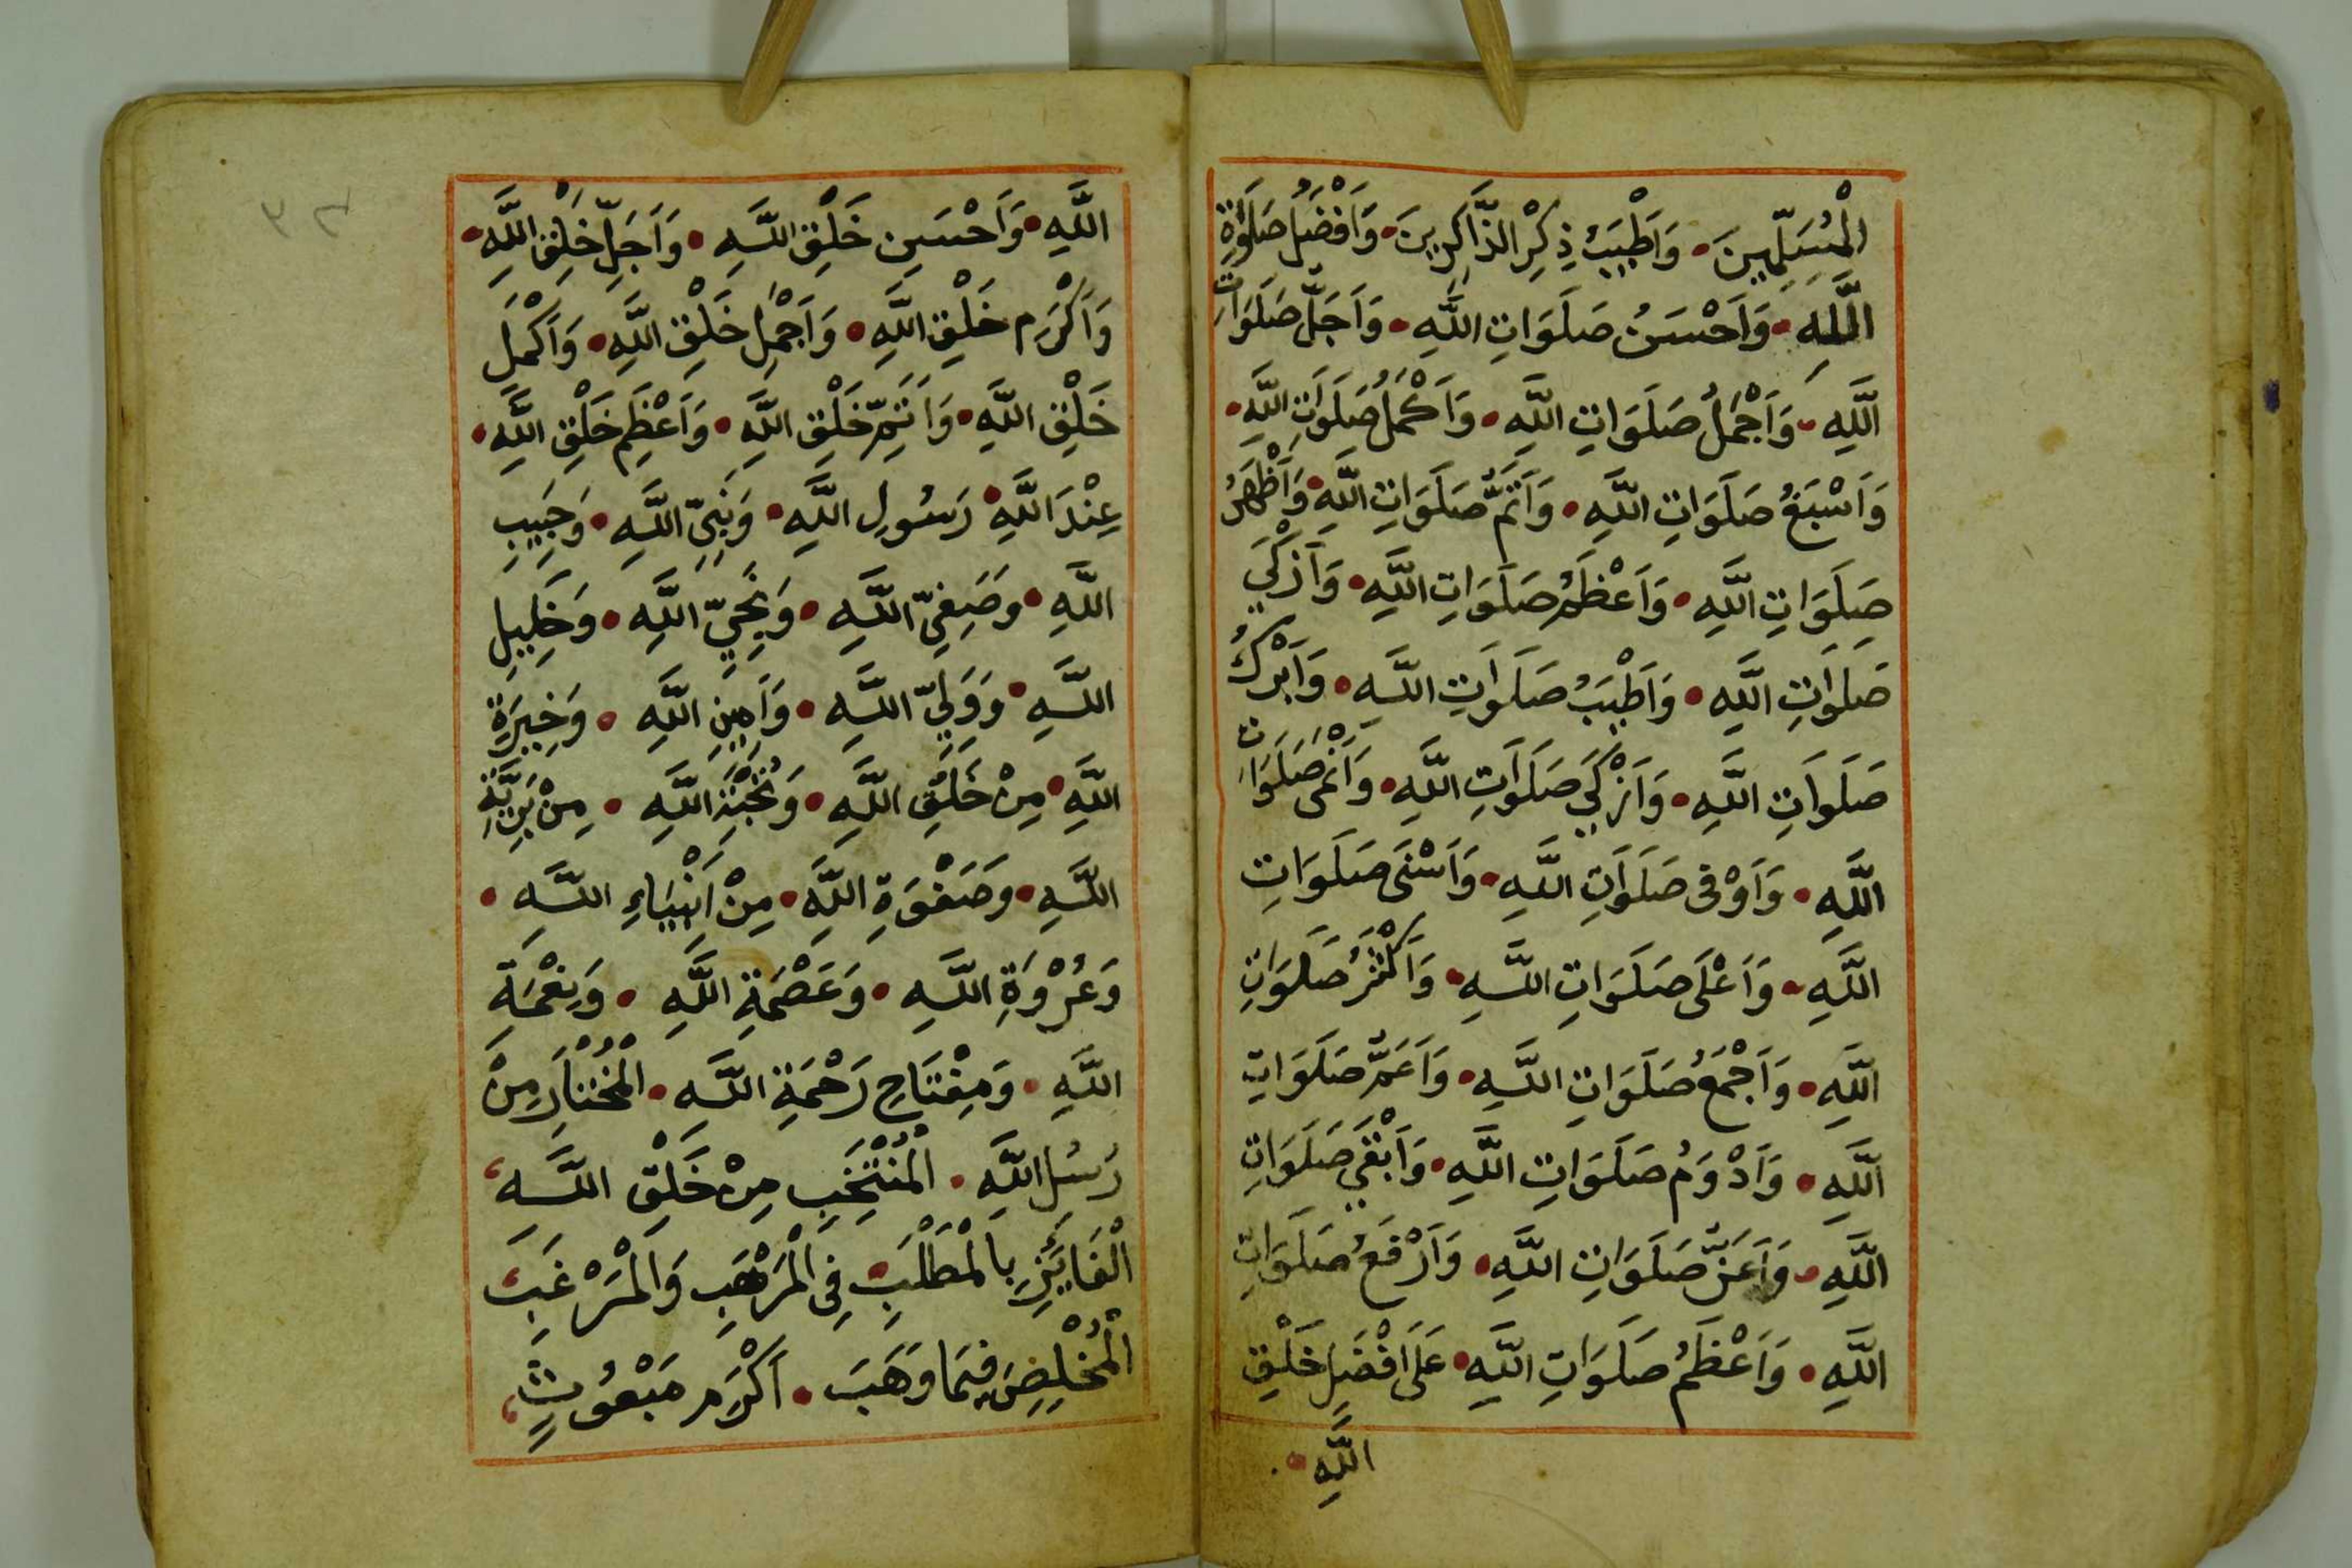 الْمُسَلِّمِينَ • وَاَطْيَبُ ذِكْرِ الذَّاكِرِينَ • وَاَفْضَلُ صَلَوٰةِ
اللَّهِ • وَاَحْسَنُ صَلَوَاتِ اللَّهِ • وَاَجَلُّ صَلَوَاتِ
اللَّهِ • وَاَجْمَلُ صَلَوَاتِ اللَّهِ • وَاَكْمَلُ صَلَوَاتِ اللَّهِ •
وَاَسْبَغُ صَلَوَاتِ اللَّهِ • وَاَتَمُّ صَلَوَاتِ اللَّهِ • وَاَظْهَرُ
صَلَوَاتِ اللَّهِ • وَاَعْظَمُ صَلَوَاتِ اللَّهِ • وَاَذْكَي
صَلَوَاتِ اللَّهِ • وَاَطْيَبُ صَلَوَاتِ اللَّهِ • وَاَبْرَكُ
صَلَوَاتِ اللَّهِ • وَاَزْكَي صَلَوَاتِ اللَّهِ • وَاَنْمَى صَلَوَات
اللَّهِ • وَاَوْفى صَلَوَاتِ اللَّهِ • وَاَسْنَى صَلَوَاتِ
اللَّهِ • وَاَعْلَى صَلَوَاتِ اللَّهِ • وَاَكْثَرُ صَلَوَاتِ
اللَّهِ • وَاَجْمَعُ صَلَوَاتِ اللَّهِ • وَاَعَمُّ صَلَوَاتِ
اللَّهِ • وَاَدْوَمُ صَلَوَاتِ اللَّهِ • وَاَبْقَي صَلَوَاتِ
اللَّهِ • وَاَعَزُّ صَلَوَاتِ اللَّهِ • وَاَرْفَعُ صَلَوَاتِ
اللَّهِ • وَاَعْظَمُ صَلَوَاتِ اللَّهِ • عَلَى اَفْضَلِ خَلْقِ
اللَّهِ •
اللَّهِ • وَاَحْسَنِ خَلْقِ اللَّهِ • وَاَجَلِّ خَلْقِ اللَّهِ •
وَاَكْرَمِ خَلْقِ اللَّهِ • وَاَجْمَلِ خَلْقِ اللَّهِ • وَاَكْمَلِ
خَلْقِ اللَّهِ • وَاَتَمِّ خَلْقِ اللَّهِ • وَاَعْظَمِ خَلْقِ اللَّهِ •
عِنْدَ اللَّهِ • رَسُولِ اللَّهِ • وَنَبِيِّ اللَّهِ • وَحَبِيبِ
اللَّهِ • وَصَفِيِّ اللَّهِ • وَنَجِيِّ اللَّهِ • وَخَلِيلِ
اللَّهِ • وَوَلِيِّ اللَّهِ • وَاَمِينِ اللَّهِ • وَخِيرَةِ
اللَّهِ • مِنْ خَلْقِ اللَّهِ • وَنُخْبَةِ اللَّهِ • مِنْ بَرِيَّةِ
اللَّهِ • وَصَفْوَةِ اللَّهِ • مِنْ اَنْبِيَاءِ اللَّهِ •
وَعُرْوَةِ اللَّهِ • وَعَصْمَةِ اللَّهِ • وَنِعْمَةِ
اللَّهِ • وَمِفْتَاحِ رَحْمَةِ اللَّهِ • الْمُخْتَارِ مِنْ
رُسُلِ اللَّهِ • الْمُنْتَخَبِ مِنْ خَلْقِ اللَّهِ،
الْفَايِزِ بِالْمَطْلَبِ فِي الْمَرْهَبِ وَالْمَرْغَبِ
الْمُخْلِصِ فِيمَا وَهَبَ • اَكْرَمِ مَبْعُوثٍ،